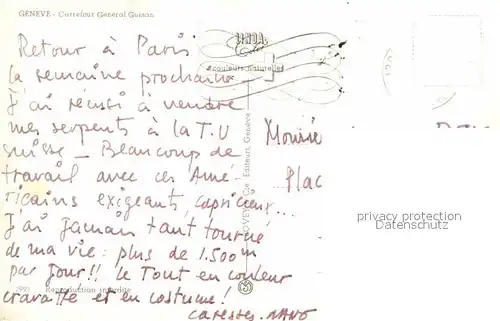 GENÈVE - Carrefour Général Guisan
Retour à Paris
la semaine prochaine
J'ai réussi à vendre
mes serpents à la T.V
suisse _ Beaucoup de
travail avec ces Amé-
ricains exigeants, capricieux...
J'ai jamais tant tourné
de ma vie: plus de 1.500m
par jour!! le Tout en couleur
cravaté et en costume!
Caresses.
Reproduction interdite
couleurs naturelles
Editeurs, Genève
Plac
privacy protection
Datenschutz